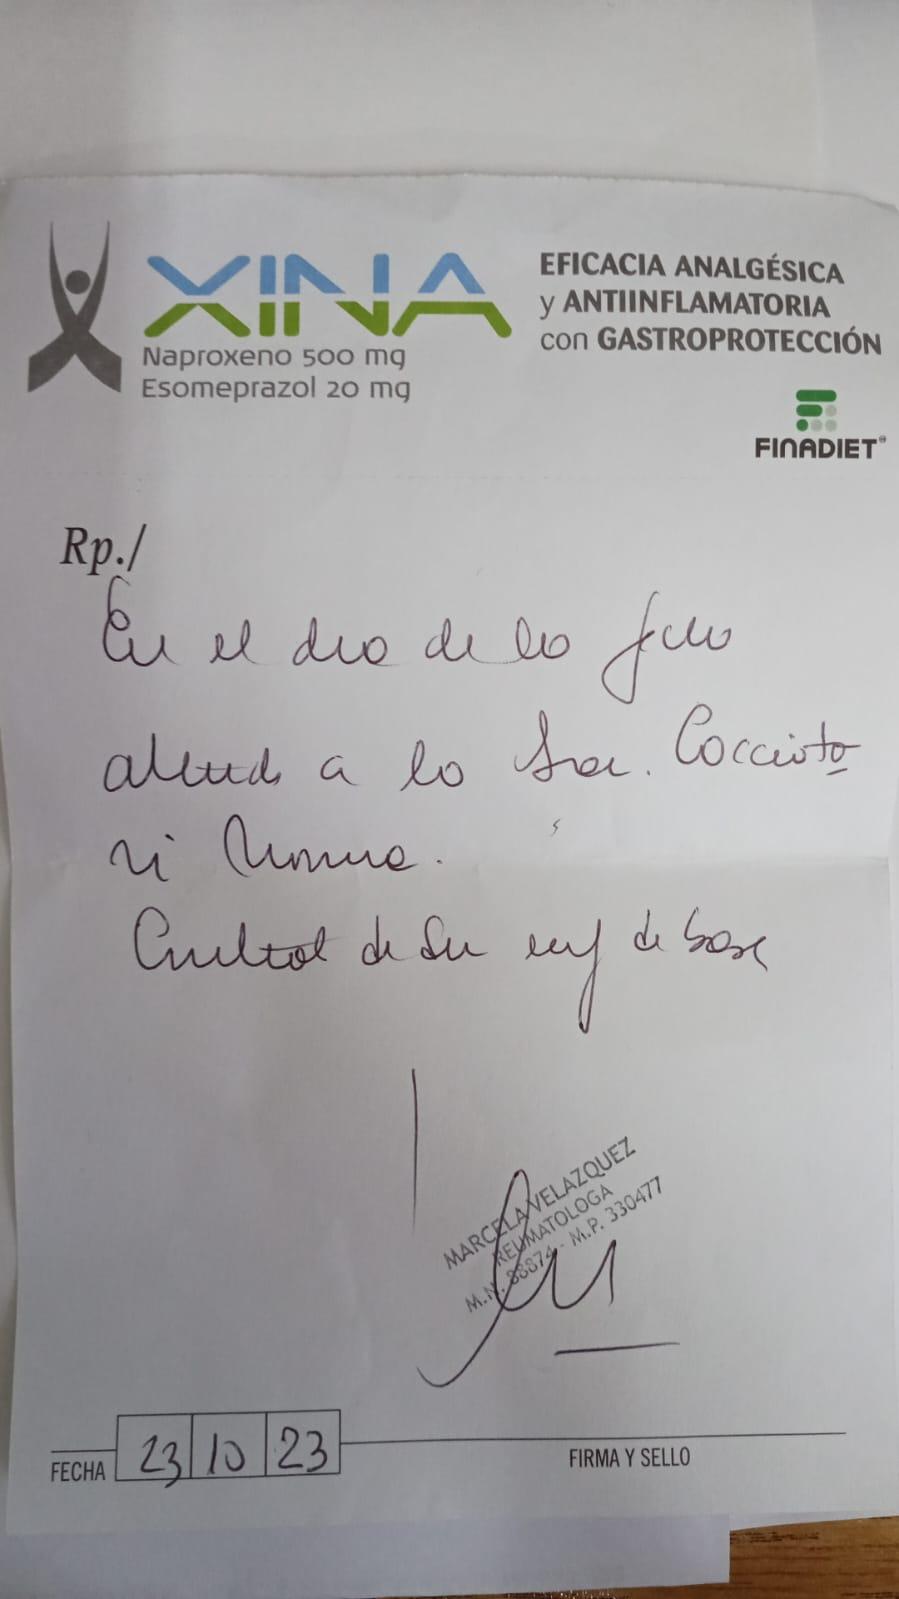 XINA
Naproxeno 500 mg
Esomeprazol 20 mg
EFICACIA ANALGÉSICA
y ANTIINFLAMATORIA
con GASTROPROTECCIÓN
FINADIET
Rp./
En el dia de la fecha
atendi a la Sra. Coccioto
Control de su enf de base
MARCELA VELAZQUEZ
REUMATOLOGA
M.N. 88874 - M.P. 330477
FECHA 23 10 23
FIRMA Y SELLO